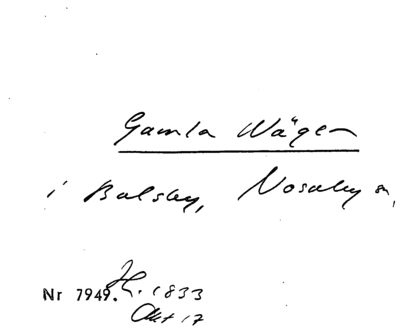 Gamla Vägen
i Balsby, Nosaby sn,
Nr 7949. H. 1833
Akt 17